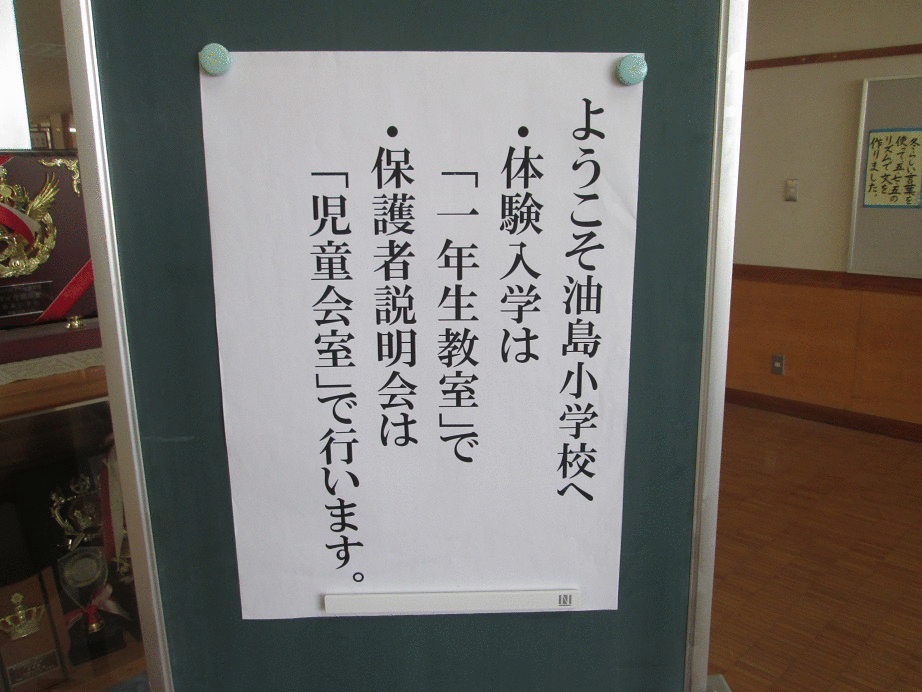 ようこそ油島小学校へ
・体験入学は
「一年生教室」で
・保護者説明会は
「児童会室」で行います。
冬らしい言葉を
使って五七五の
リズムで文を
作りました。
N